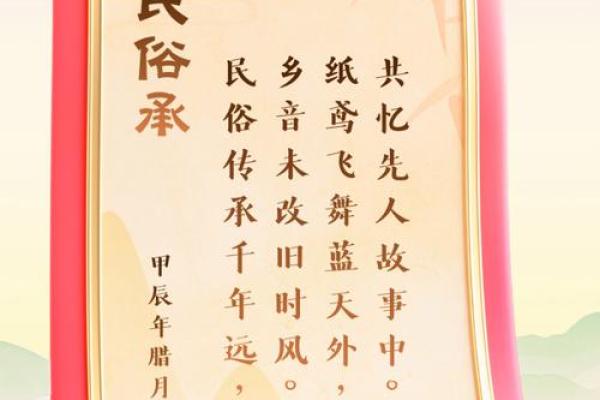 民俗承
甲辰年腊月
民俗传承千年远，
乡音未改旧时风。
纸鸢飞舞蓝天外，
共忆先人故事中。